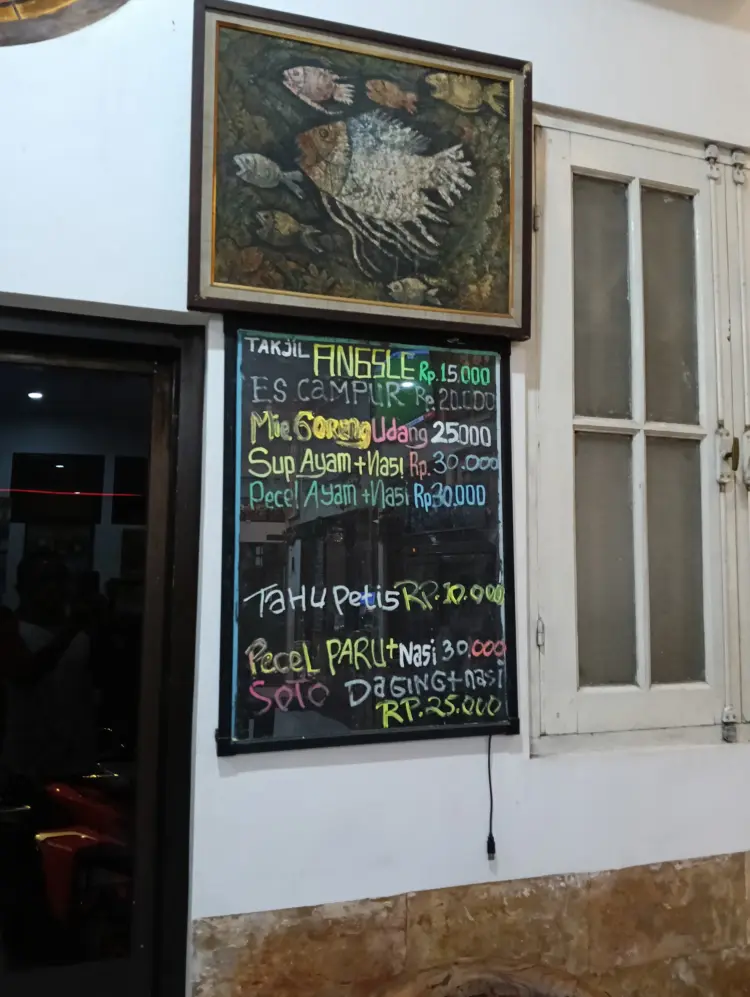 TAKJIL ANGSLE Rp.15.000
ES CAMPUR Rp 20.000
Mie Goreng Udang 25.000
Sup Ayam + Nasi Rp. 30.000
Pecel Ayam + Nasi Rp30.000
TAHU Petis RP.10.000
PeceL PARU + Nasi 30.000
SOTO DAGING + nasi
RP.25.000